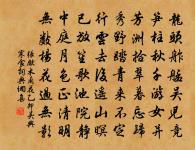 龍頭舴艋吳兒競
笋柱秋千游女并
芳洲拾翠暮忘歸
秀野踏青來不定
行雲去後遙山暝
已放笙歌池院靜
中庭月色正清明
無數楊花過無影
張先木蘭花乙卯吳興
寒食詞典網集